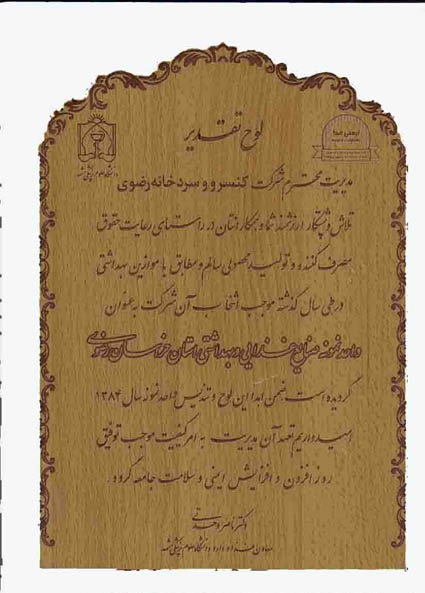 لوح تقدیر
ایمنی غذا
دانشگاه علوم پزشکی مشهد
مدیریت محترم شرکت کنسرو و سردخانه رضوی
تلاش و پشتکار ارزشمند شما و همکارانتان در راستای رعایت حقوق
مصرف کننده و تولید محصولی سالم و مطابق با موازین بهداشتی
در طی سال گذشته موجب انتخاب آن شرکت به عنوان
واحد نمونه صنایع غذایی و بهداشتی استان خراسان رضوی
گردیده است ضمن اهدا این لوح و تندیس واحد نمونه سال ۱۳۸۴
امیدواریم تعهد آن مدیریت به امر کیفیت موجب توفیق
روز افزون و افزایش ایمنی و سلامت جامعه گردد.
دکتر ناصر وحدتی
معاون غذا و دارو دانشگاه علوم پزشکی مشهد